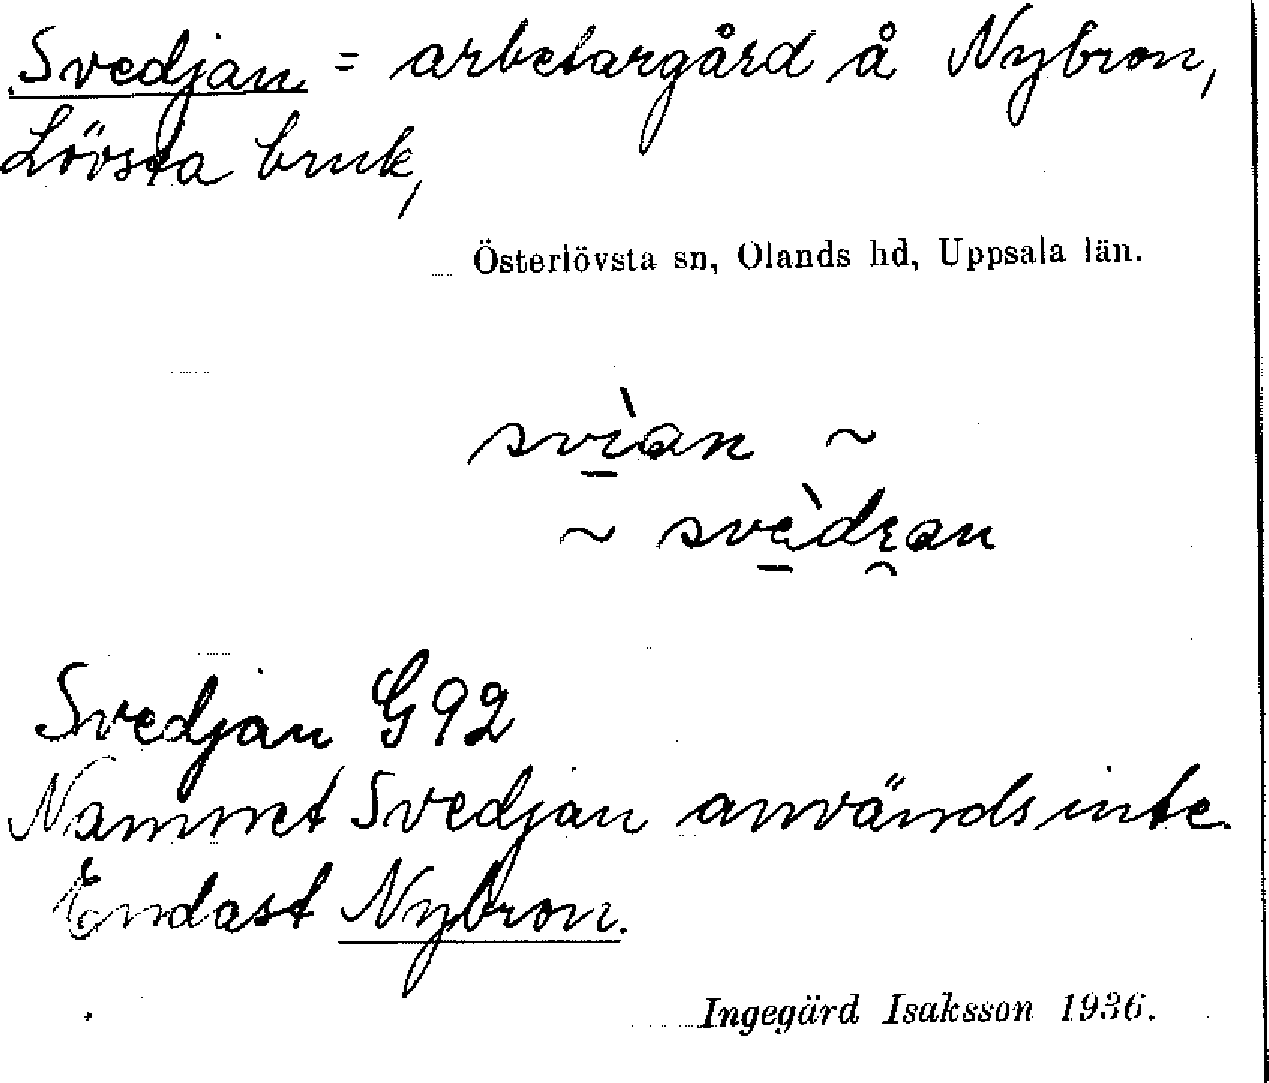 Svedjan = arbetargård å Nybron,
Lövsta bruk,
Österlövsta sn, Olands hd, Uppsala län.
svìan ~
~ svèdɛ̯an
Svedjan G 92
Namnet Svedjan användsinte.
Endast Nybron.
Ingegärd Isaksson 1936.